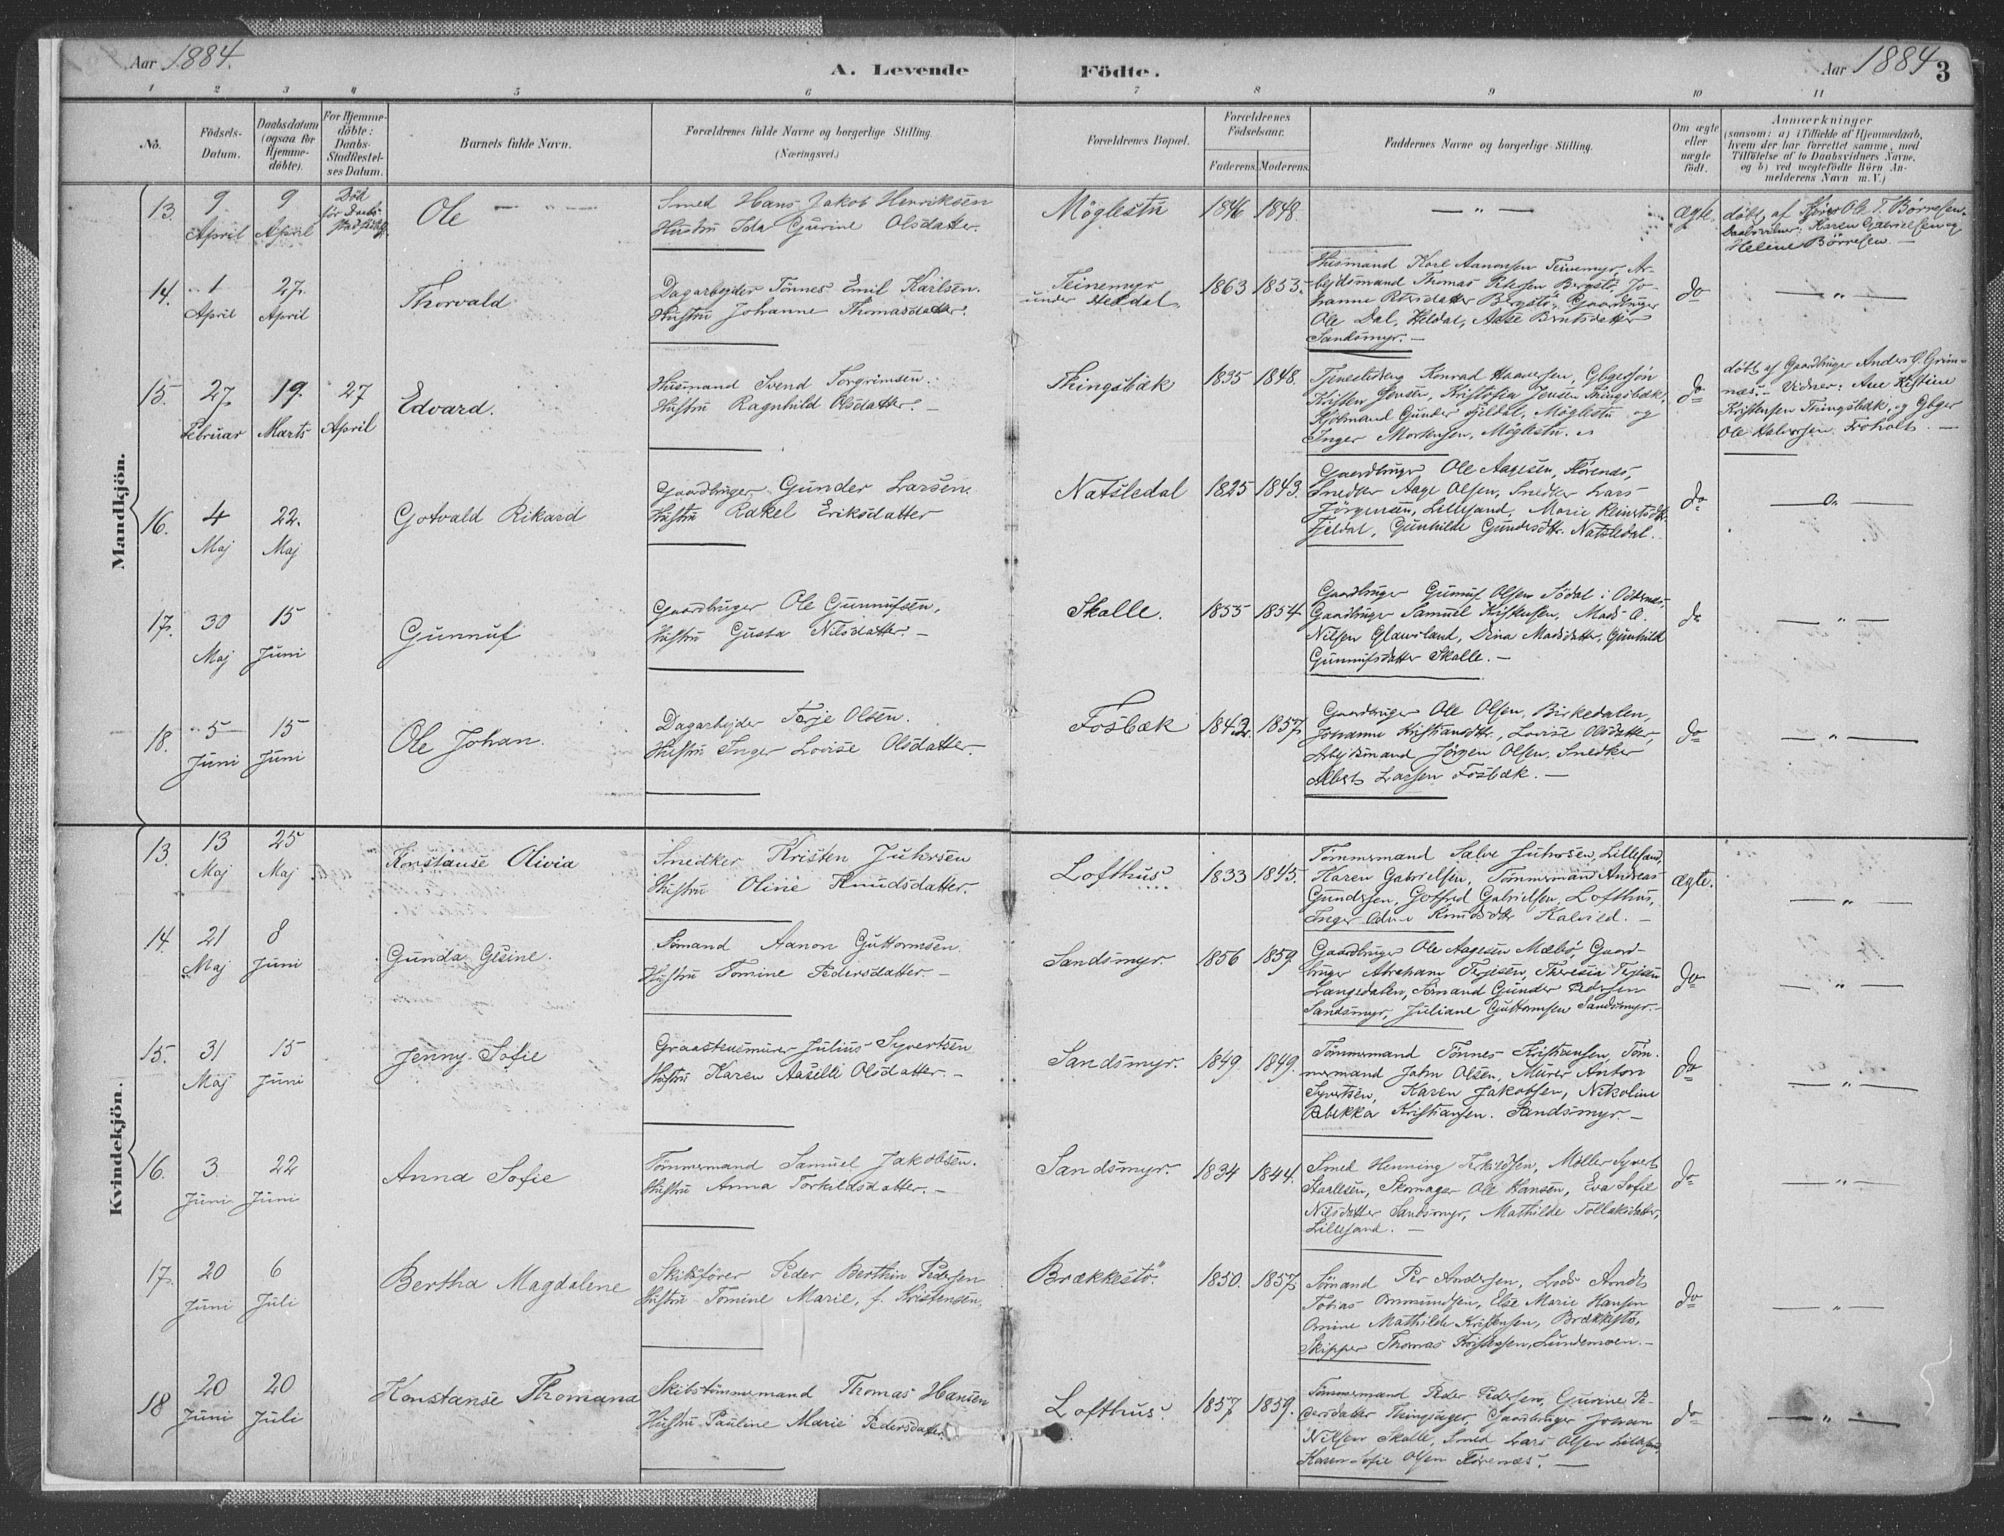 Aar 1884.
A. Levende Födte.
Aar 1884 3
1 2 3 4 5 6 7 8 9 10 11
No.
Födsels-
Datum.
Daabsdatum
(ogsaa for
Hjemme-
döbte).
For Hjemme-
döbte:
Daabs-
Stadfæstel-
ses Datum.
Barnets fulde Navn.
Forældrenes fulde Navne og borgerlige Stilling.
(Næringsvei.)
Forældrenes Bopæl.
Forældrenes
Födselsaar.
Faderens. Moderens.
Faddernes Navne og borgerlige Stilling.
Om ægte
eller
uægte
født.
Anmærkninger
(saasom: a) i Tilfælde af Hjemmedaab,
hvem der har forrettet samme, med
Tilföielse af to Daabsvidners Navne,
og b) ved uægtefödte Börn An-
melderens Navn m. V.)
Mandkjön.
13. 9 April 9 April
Död
før Daabs-
Ole — „ —
Smed Hans Jakob Henriksen
Hustru Ida Gurine Olsdatter.
Möglestu 1846 1848.
— „ —
ægte.
döbt af Ole T. Börresen.
Daabsvidner: Karen Gabrielsen og
Helene Börresen. —
14. 1 April 27 April
Thorvald
Dagarbejder Tönnes Emil Karlsen.
Hustru Johanne Thomasdatter.
Teinemyr
under Heldal. 1863 1853.
Husmand Karl Aanonsen Teinemyr, Ar-
bejdsmand Thomas Petersen Bergstö, Jo-
hanne Petersdatter Bergstö, Gaardbruger
Ole Dal, Heldal, Aase Berntsdatter
Sandsmyr. —
do — „ —
15. 27 Februar 19. Marts 27 April
Edvard.
Husmand Svend Torgrimsen.
Hustru Ragnhild Olsdatter. —
Thingsbæk 1835 1848.
Tjenestedreng Konrad Haaversen, Gbgersön
Kristen Jensen, Kristofia Jensen Thingsbæk,
Hjulmand Gunder Fjeldal, Möglestu og
Inger Mortensen, Möglestu.
do
döbt af Gaardbruger Anders G. Grim-
næs. — Vidner: Ane Kistine
Kristensen Thingsbæk, og Gbger
Ole Halvorsen Froholt. —
16. 4 Maj 22. Maj
Gotvald Rikard
Gaardbruger Gunder Larsen.
Hustru Rakel Eriksdatter
Natsledal 1825 1843.
Gaardbruger Ole Aagesen, Flörenæs,
Snedker Aage Olsen, Snedker Lars
Jörgensen, Lillesand, Marie Reinertsdtr.
Fjeldal, Gunhilde Gundersdtr. Natsledal.
do — „ —
17. 30 Maj 15 Juni
Gunnuf
Gaardbruger Ole Gunnufsen,
Hustru Gusta Nilsdatter. —
Skalle. 1855 1854.
Gaardbruger Gunnuf Olsen Södal i Oddernes,
Gaardbruger Samuel Kristensen, Mads O.
Nilsen Glamsland, Dina Madsdatter, Gunhild
Gunnufsdatter Skalle. —
do — „ —
18. 5 Juni 15 Juni
Ole Johan.
Dagarbejder Terje Olsen.
Hustru Inger Lovise Olsdatter —
Fosbæk 1842. 1857
Gaardbruger Ole Olsen, Birkedalen,
Johanne Kristiansdtr., Lovise Olsdatter,
Arbejdsmand Jörgen Olsen, Snedker
Albert Larsen Fosbæk. —
do — „ —
Kvindekjön.
13. 13 Maj 25 Maj
Konstanse Olivia
Snedker Kristen Juhrsen
Hustru Oline Knudsdatter. —
Lofthus. 1833 1845.
Tömmermand Salve Juhrsen, Lillesand,
Karen Gabrielsen, Tömmermand Andreas
Gundersen, Gotfred Gabrielsen, Lofthus,
Inger Knudsdtr Kalvild. —
ægte. — „ —
14. 21 Maj 8 Juni
Gunda Gesine.
Sömand Aanon Guttormsen
Hustru Tomine Pedersdatter. —
Sandsmyr. 1856 1859.
Gaardbruger Ole Aagesen Mæbö, Gaard-
bruger Abraham Terjesen, Theresia Terjesen
Langedalen, Sömand Gunder Pedersen
Sandsmyr, Juliane Guttormsen Sandsmyr. —
do — „ —
15. 31 Maj 15 Juni
Jenny Sofie
Graastensmurer Julius Syvertsen
Hustru Karen Aaselli Olsdatter. —
Sandsmyr. 1849 1849.
Tömmermand Tönnes Kristiansen, Töm-
mermand John Olsen, Murer Anton
Syvertsen, Karen Jakobsen, Nikoline
Rebekka Kristiansen. Sandsmyr. —
do — „ —
16. 3. Juni 22 Juni
Anna Sofie
Tömmermand Samuel Jakobsen.
Hustru Anna Torkildsdatter. —
Sandsmyr. 1834 1844.
Smed Henning Terkildsen, Möller Syvert
Staalesen, Skomager Ole Hansen, Eva Sofie
Nilsdatter Sandsmyr, Mathilde Tollaksdatter,
Lillesand. —
do — „ —
17. 20 Juni 6 Juli
Bertha Magdalene
Skibsförer Peder Berthin Pedersen
Hustru Tomine Marie, f. Kristensen.
Brækkestö. 1850. 1857
Sömand Per Andersen, Lods Arndt
Tobias Ommundsen, Else Marie Hansen
Omine Mathilde Kristensen, Brækkestö,
Skipper Thomas Kristensen, Lundemoen. —
do — „ —
18 20 Juni 20 Juli
Konstanse Thomana
Skibstömmermand Thomas Hansen
Hustru Pauline Marie Pedersdatter.
Lofthus. 1857 1859.
Tömmermand Peder Pedersen, Gurine Pe-
dersdatter Thingsager, Gaardbruger Johan
Nilsen Skalle, Smed Lars Olsen Lillesand,
Karen Sofie Olsen Flörenæs. —
do — „ —